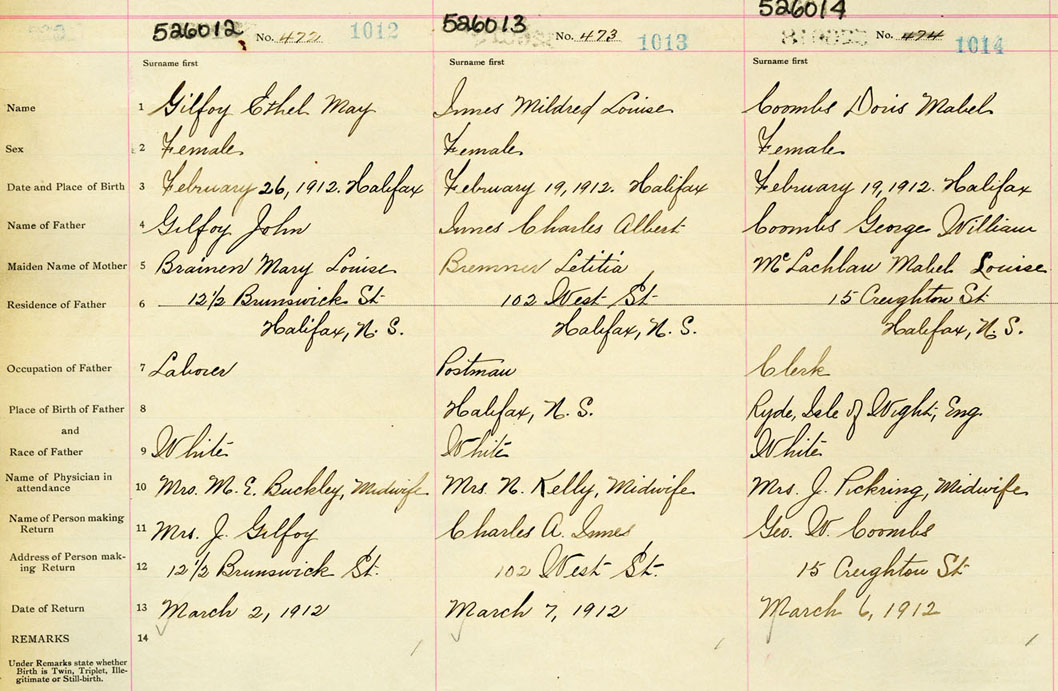 526012 No. 472 1012 526013 No. 473 1013 526014 No. 474 1014
Surname first Surname first Surname first
Name 1 Gilfoy Ethel May Innes Mildred Louise Coombs Doris Mabel
Sex 2 Female Female Female
Date and Place of Birth 3 February 26, 1912. Halifax February 19, 1912. Halifax February 19, 1912. Halifax
Name of Father 4 Gilfoy John Innes Charles Albert Coombs George William
Maiden Name of Mother 5 Brainen Mary Louise Bremner Letitia McLachlan Mabel Louise
Residence of Father 6 12½ Brunswick St. 102 West St. 15 Creighton St.
Halifax, N. S. Halifax, N. S. Halifax, N. S.
Occupation of Father 7 Laborer Postman Clerk
Place of Birth of Father 8 Halifax, N. S. Ryde, Isle of Wight, Eng.
and
Race of Father 9 White White White
Name of Physician in
attendance 10 Mrs. M. E. Buckley, Midwife Mrs. N. Kelly, Midwife Mrs. J. Pickring, Midwife
Name of Person making
Return 11 Mrs. J. Gilfoy Charles A. Innes Geo. W. Coombs
Address of Person mak-
ing Return 12 12½ Brunswick St. 102 West St. 15 Creighton St
Date of Return 13 March 2, 1912 March 7, 1912 March 6, 1912
REMARKS 14
Under Remarks state whether
Birth is Twin, Triplet, Ille-
gitimate or Still-birth.